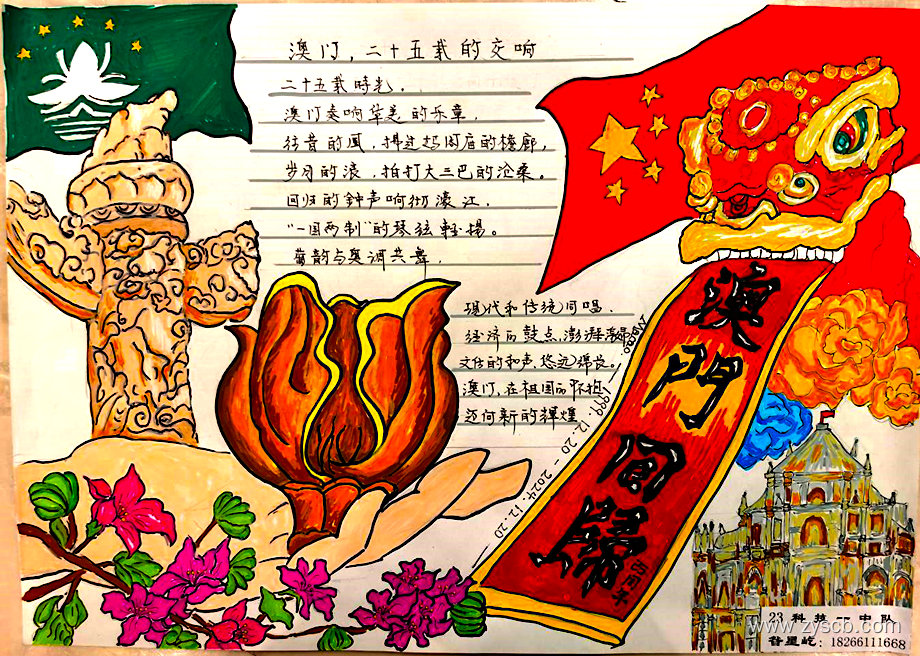 澳门，二十五载的交响
二十五载時光，
澳门奏响华美的乐章，
往昔的风，拂过妈阁庙的檐廊，
岁月的浪，拍打大三巴的沧桑。
回归的钟声响彻濠江，
“一国两制”的琴弦轻揚。
葡韵与粤调共舞，
现代和传统同唱，
经济的鼓点，澎湃
文化的和声，悠远绵长。
澳门，在祖国的怀抱，
迈向新的輝煌
澳門回歸
Macao
1999.12.20-2024.12.20
23科技一中队
18266111668
www.zyscb.com